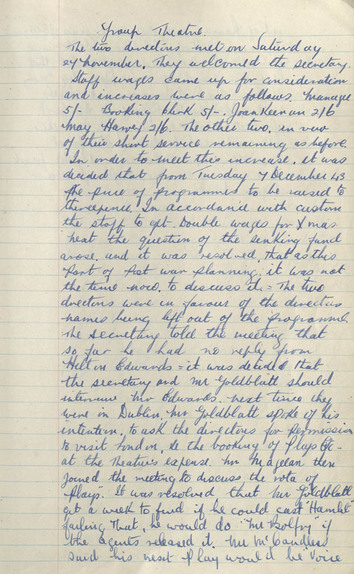 Group Theatre.
The two directors met on Saturday
27 November. They welcomed the secretary.
Staff wages came up for consideration
and increases were as follows. Manager
5/- Booking Clerk 5/-, Joan Keenan 2/6
May Harvey 2/6. The other two, in view
of their short service remaining as before.
In order to meet this increase, it was
decided that from Tuesday 7 December 43
the price of programmes to be raised to
threepence. In accordance with custom
the staff to get Double wages for Xmas
next the question of the sinking fund
arose, and it was resolved, that as this
Part of Post war planning, it was not
the time now, to discuss it = The two
directors were in favour of the directors
names being left out of the programme.
The secretary told the meeting that
so far he had no reply from
Hilton Edwards = it was decided that
the secretary and Mr Goldblatt should
interview Mr Edwards. next time they
were in Dublin. Mr Goldblatt spoke of his
intention, to ask the directors for permission
to visit London, re the booking of Plays etc -
at the theatres expense. Mr Magelan then
joined the meeting to discuss the rota of
Plays. It was resolved that Mr Goldblatt
get a week to find if he could cast "Hamlet"
failing that, he would do "Mr Bolfry" if
the agents released it. Mr McCandless
said his next play would be "Voice